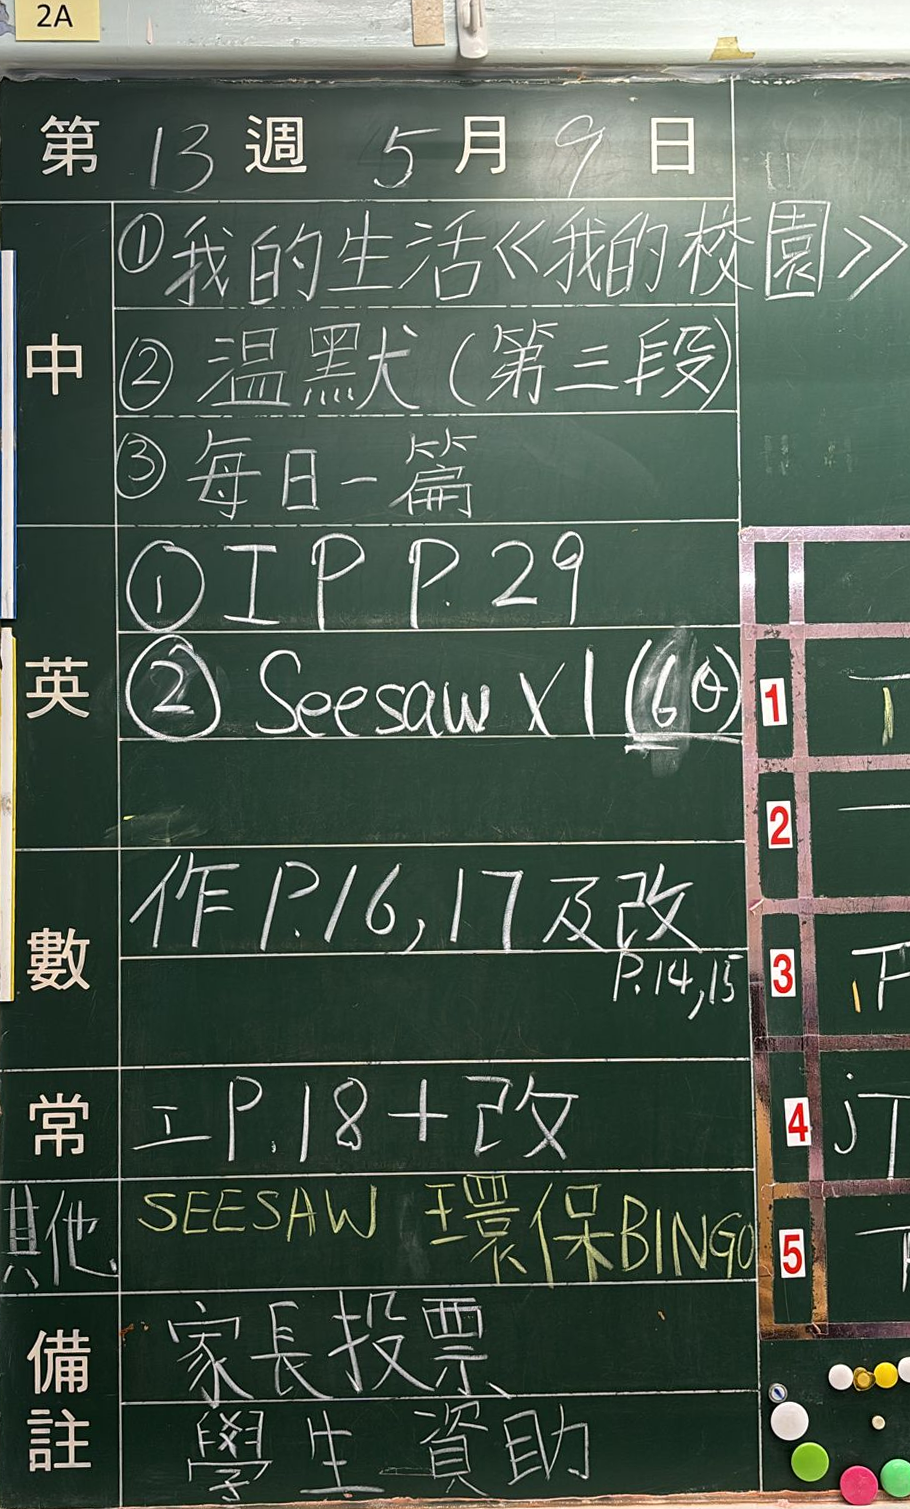 2A
第 13 週 5 月 9 日
中
①我的生活《我的校園》
② 溫默（第三段）
③ 每日一篇
英
① IP P.29
② Seesaw x1 (6θ)
數
作 P.16, 17 及改
P.14, 15
常
工 P.18 + 改
其他
SEESAW 環保BINGO
備註
家長投票
學生資助
1
2
3
4
5